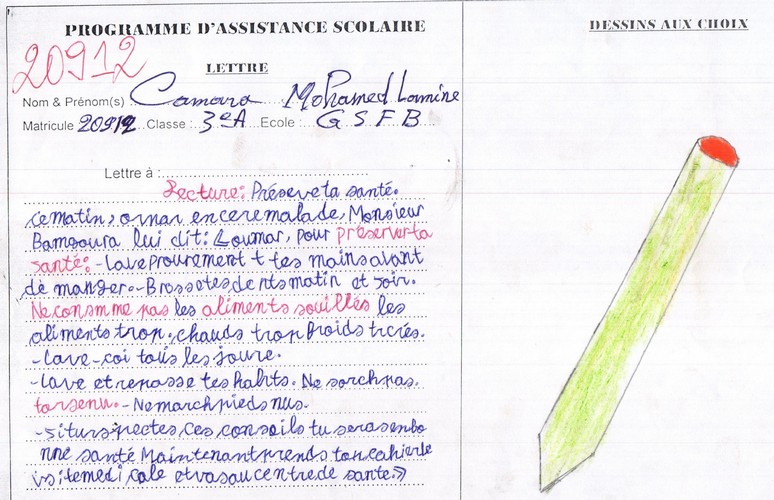 PROGRAMME D'ASSISTANCE SCOLAIRE
DESSINS AUX CHOIX
20912
LETTRE
Nom & Prénom(s) Camara Mohamed Lamine
Matricule 20912 Classe : 3eA Ecole : G S F B
Lettre à :
Lecture: Préserve ta santé.
ce matin, omar encere malade, Monsieur
Bamgoura lui dit: Loumar, pour préserver ta
santé: - Lave prourement t tes mains avant
de manger. - Brosse tes de nts matin et soir.
Ne consmme pas les aliments souillés les
aliments trop, chauds trop froids ticrés.
- Lave - coi tous les joure.
- Lave et repasse tes habits. Ne sorch pas.
torsenu. - Ne march pieds nus.
- si turspectes ces conseils tu seras enbo
nne santé Maintenant prends ton cahier le
visitemedi cale et va sau centre de sante.»